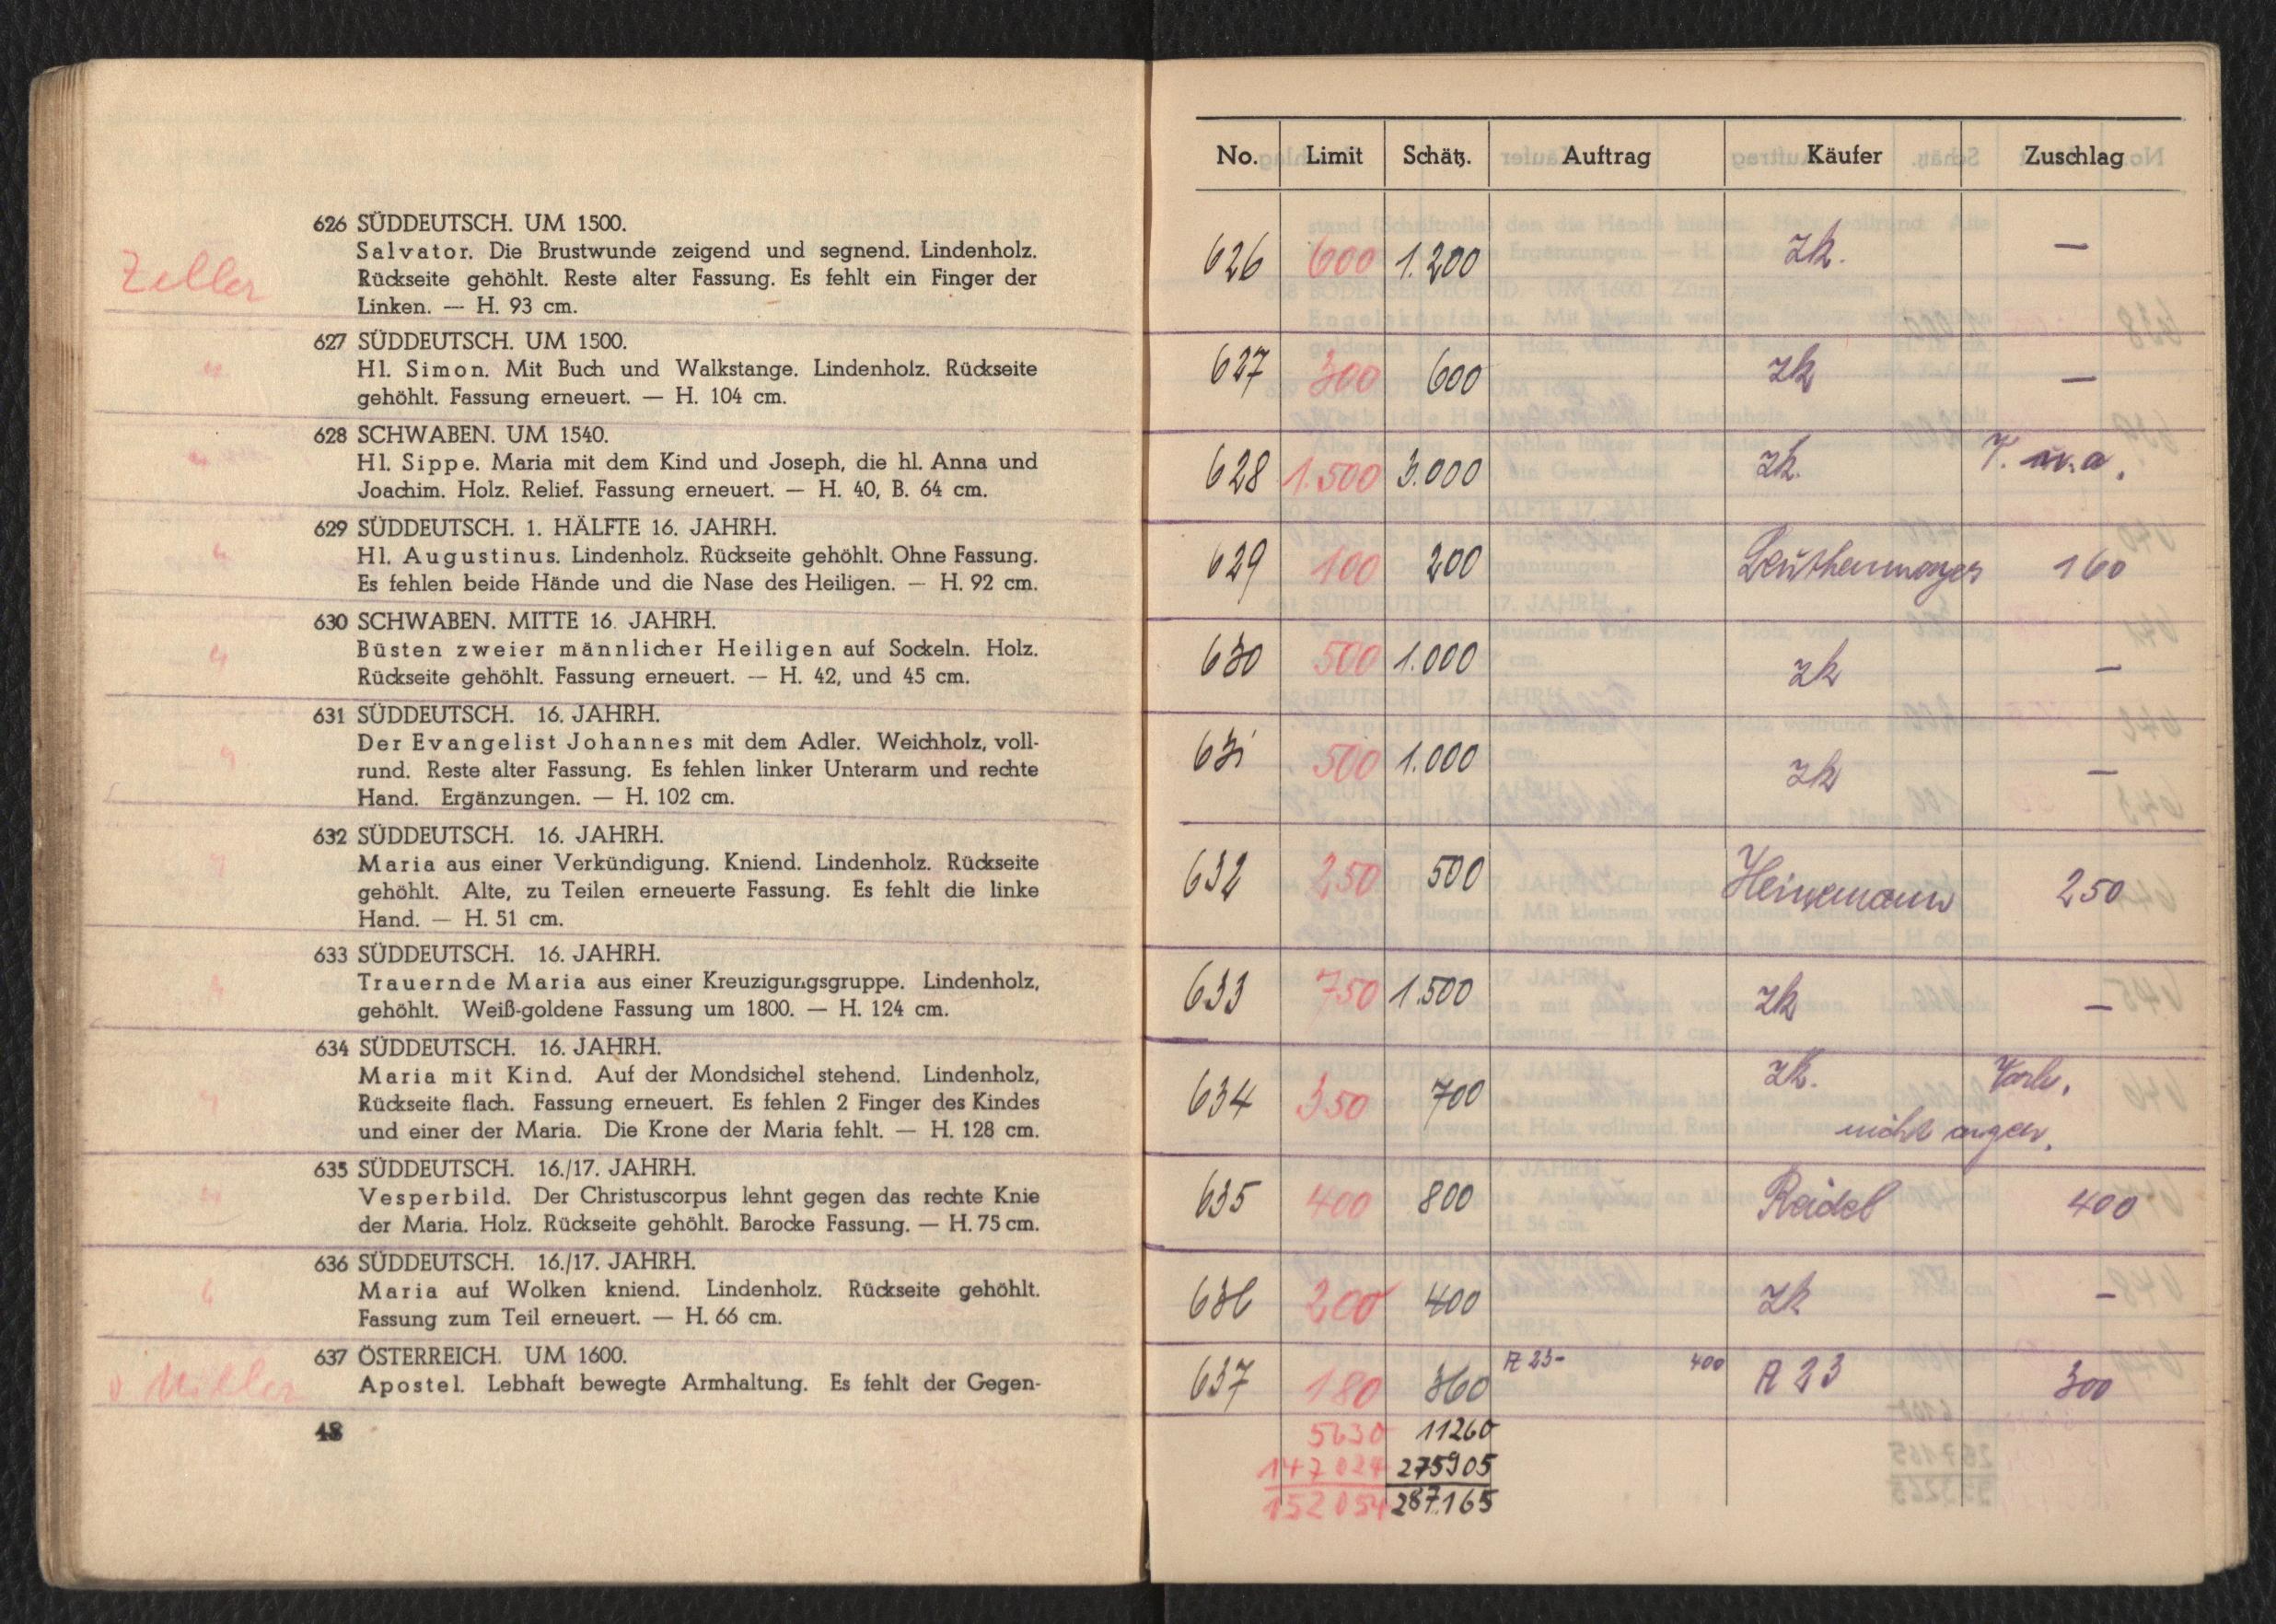 626 SÜDDEUTSCH. UM 1500.
Salvator. Die Brustwunde zeigend und segnend. Lindenholz.
Rückseite gehöhlt. Reste alter Fassung. Es fehlt ein Finger der
Linken. — H. 93 cm.
Zeller
627 SÜDDEUTSCH. UM 1500.
Hl. Simon. Mit Buch und Walkstange. Lindenholz. Rückseite
gehöhlt. Fassung erneuert. — H. 104 cm.
628 SCHWABEN. UM 1540.
Hl. Sippe. Maria mit dem Kind und Joseph, die hl. Anna und
Joachim. Holz. Relief. Fassung erneuert. — H. 40, B. 64 cm.
629 SÜDDEUTSCH. 1. HÄLFTE 16. JAHRH.
Hl. Augustinus. Lindenholz. Rückseite gehöhlt. Ohne Fassung.
Es fehlen beide Hände und die Nase des Heiligen. — H. 92 cm.
630 SCHWABEN. MITTE 16. JAHRH.
Büsten zweier männlicher Heiligen auf Sockeln. Holz.
Rückseite gehöhlt. Fassung erneuert. — H. 42, und 45 cm.
631 SÜDDEUTSCH. 16. JAHRH.
Der Evangelist Johannes mit dem Adler. Weichholz, voll-
rund. Reste alter Fassung. Es fehlen linker Unterarm und rechte
Hand. Ergänzungen. — H. 102 cm.
632 SÜDDEUTSCH. 16. JAHRH.
Maria aus einer Verkündigung. Kniend. Lindenholz. Rückseite
gehöhlt. Alte, zu Teilen erneuerte Fassung. Es fehlt die linke
Hand. — H. 51 cm.
633 SÜDDEUTSCH. 16. JAHRH.
Trauernde Maria aus einer Kreuzigungsgruppe. Lindenholz,
gehöhlt. Weiß-goldene Fassung um 1800. — H. 124 cm.
634 SÜDDEUTSCH. 16. JAHRH.
Maria mit Kind. Auf der Mondsichel stehend. Lindenholz,
Rückseite flach. Fassung erneuert. Es fehlen 2 Finger des Kindes
und einer der Maria. Die Krone der Maria fehlt. — H. 128 cm.
635 SÜDDEUTSCH. 16./17. JAHRH.
Vesperbild. Der Christuscorpus lehnt gegen das rechte Knie
der Maria. Holz. Rückseite gehöhlt. Barocke Fassung. — H. 75 cm.
636 SÜDDEUTSCH. 16./17. JAHRH.
Maria auf Wolken kniend. Lindenholz. Rückseite gehöhlt.
Fassung zum Teil erneuert. — H. 66 cm.
637 ÖSTERREICH. UM 1600.
Apostel. Lebhaft bewegte Armhaltung. Es fehlt der Gegen-
48
No. Limit Schätz. Auftrag Käufer Zuschlag
626 600 1.200 zk. —
627 300 600 zk —
628 1.500 3.000 zk.
629 100 200 160
630 500 1.000 zk —
631 500 1.000 zk —
632 250 500 Heinemann 250
633 750 1.500 zk —
634 350 700 zk. Vorb.
nicht angen.
635 400 800 Reidel 400
636 200 400 zk —
637 180 360 A 23- 400 A 23 300
5630 11260
147024 275905
152054 287.165